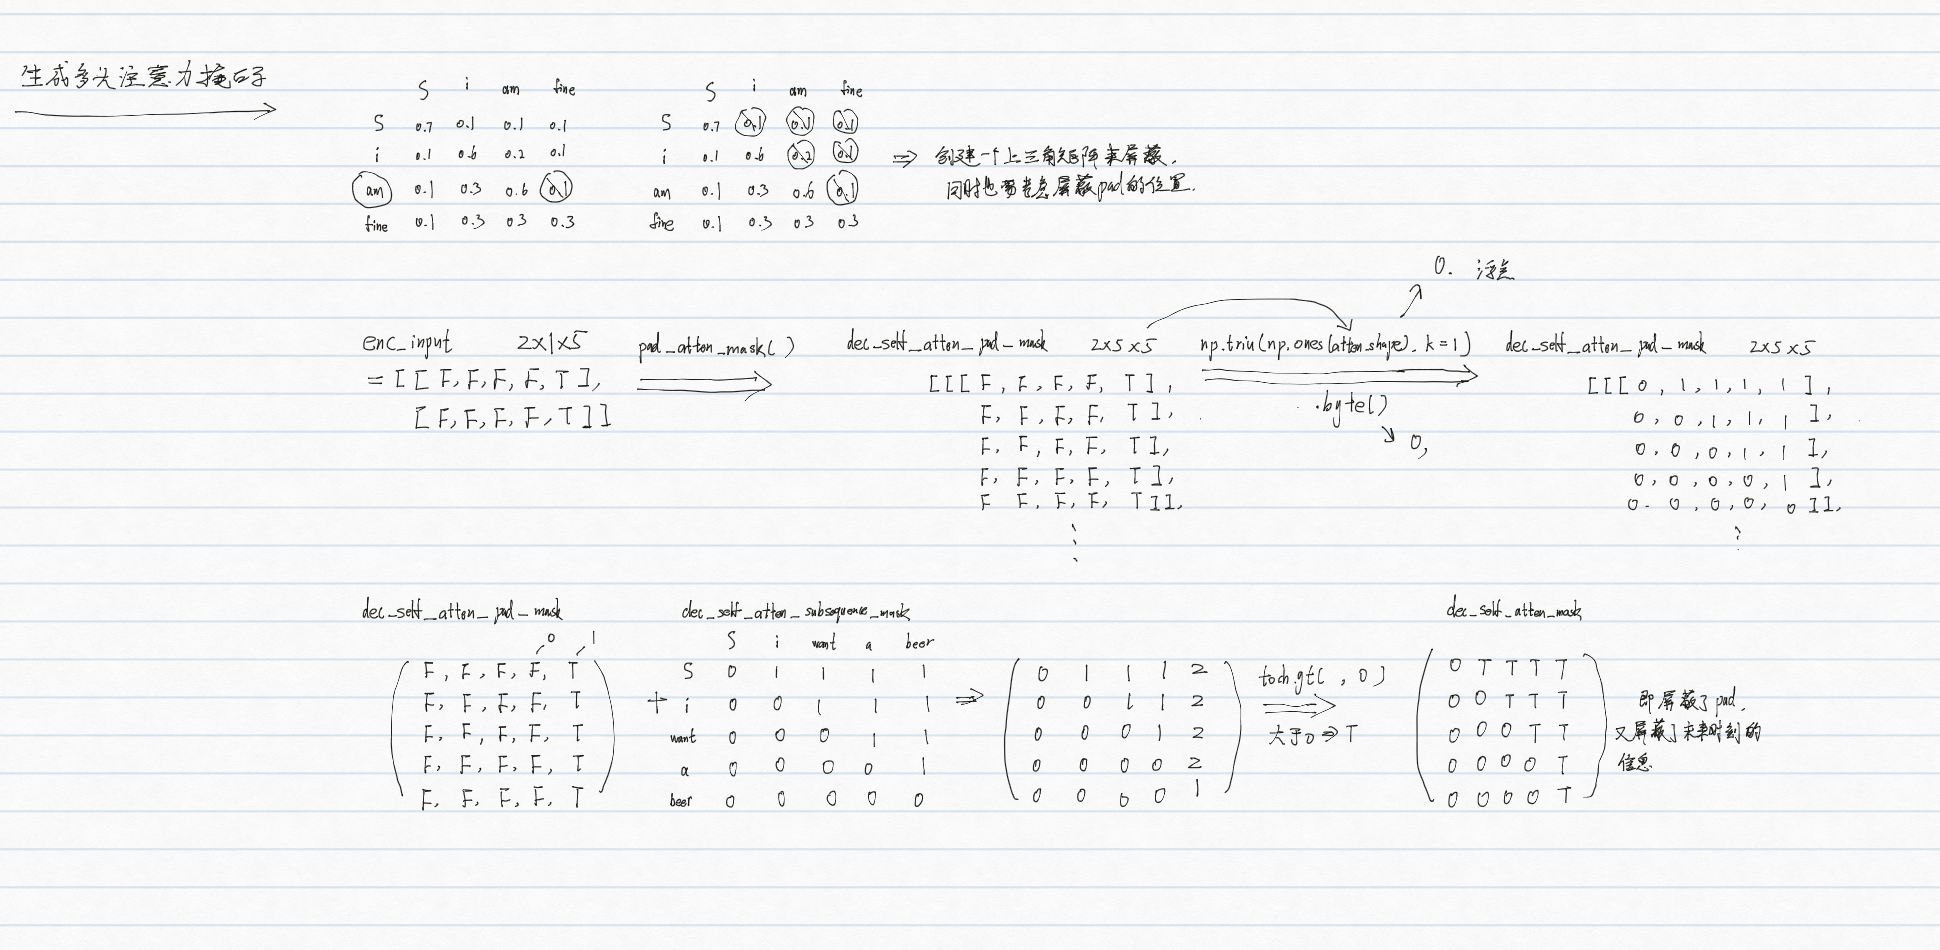 生成多头注意力掩码子
S i am fine
S 0.7 0.1 0.1 0.1
i 0.1 0.6 0.2 0.1
am 0.1 0.3 0.6 0.1
fine 0.1 0.3 0.3 0.3
S i am fine
S 0.7 0.1 0.1 0.1
i 0.1 0.6 0.2 0.1
am 0.1 0.3 0.6 0.1
fine 0.1 0.3 0.3 0.3
⇒ 创建一个上三角矩阵来屏蔽.
同时也要考虑屏蔽pad的位置.
enc_input 2×1×5
= [ [ F, F, F, F, T ],
[ F, F, F, F, T ] ]
pad_atten_mask( )
dec_self_atten_pad_mask 2×5×5
[ [ [ F, F, F, F, T ],
F, F, F, F, T ],
F, F, F, F, T ],
F, F, F, F, T ],
F F, F, F, T ] ],
0. 浮点
np.triu(np.ones(atten_shape), k=1)
.byte()
0,
dec_self_atten_pad_mask 2×5×5
[ [ [ 0, 1, 1, 1, 1 ],
0, 0, 1, 1, 1 ],
0, 0, 0, 1, 1 ],
0, 0, 0, 0, 1 ],
0. 0, 0, 0, 0 ] ],
dec_self_atten_pad_mask
0 1
F, F, F, F, T
F, F, F, F, T
F, F, F, F, T
F, F, F, F, T
F, F, F, F, T
+
dec_self_atten_subsequence_mask
S i want a beer
S 0 1 1 1 1
i 0 0 1 1 1
want 0 0 0 1 1
a 0 0 0 0 1
beer 0 0 0 0 0
⇒
0 1 1 1 2
0 0 1 1 2
0 0 0 1 2
0 0 0 0 2
0 0 0 0 1
torch.gt( , 0)
大于0 ⇒ T
dec_self_atten_mask
0 T T T T
0 0 T T T
0 0 0 T T
0 0 0 0 T
0 0 0 0 T
即屏蔽了pad,
又屏蔽了未来时刻的
信息